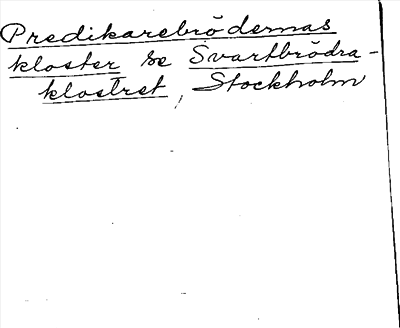 Predikarebrödernas
kloster se Svartbrödra-
klostret, Stockholm